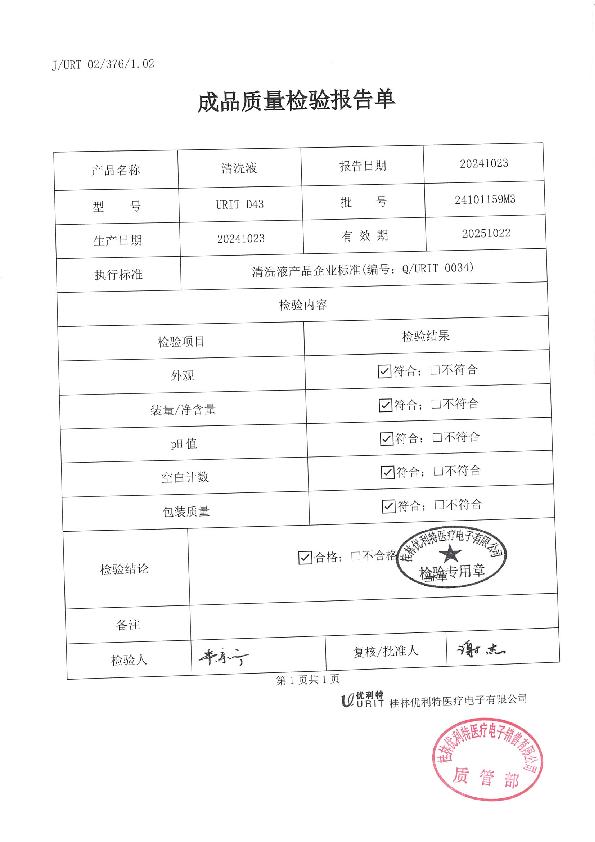 J/URT 02/376/1.02
成品质量检验报告单
产品名称 清洗液 报告日期 20241023
型 号 URIT D43 批 号 24101159M3
生产日期 20241023 有 效 期 20251022
执行标准 清洗液产品企业标准(编号: Q/URIT 0034)
检验内容
检验项目 检验结果
外观 ☑符合; □不符合
装量/净含量 ☑符合; □不符合
pH值 ☑符合; □不符合
空白计数 ☑符合; □不符合
包装质量 ☑符合; □不符合
检验结论 ☑合格; □不合格
桂林优利特医疗电子有限公司
检验专用章
备注
检验人 复核/批准人
第1页共1页
优利特
URIT 桂林优利特医疗电子有限公司
桂林优利特医疗电子销售有限公司
质管部